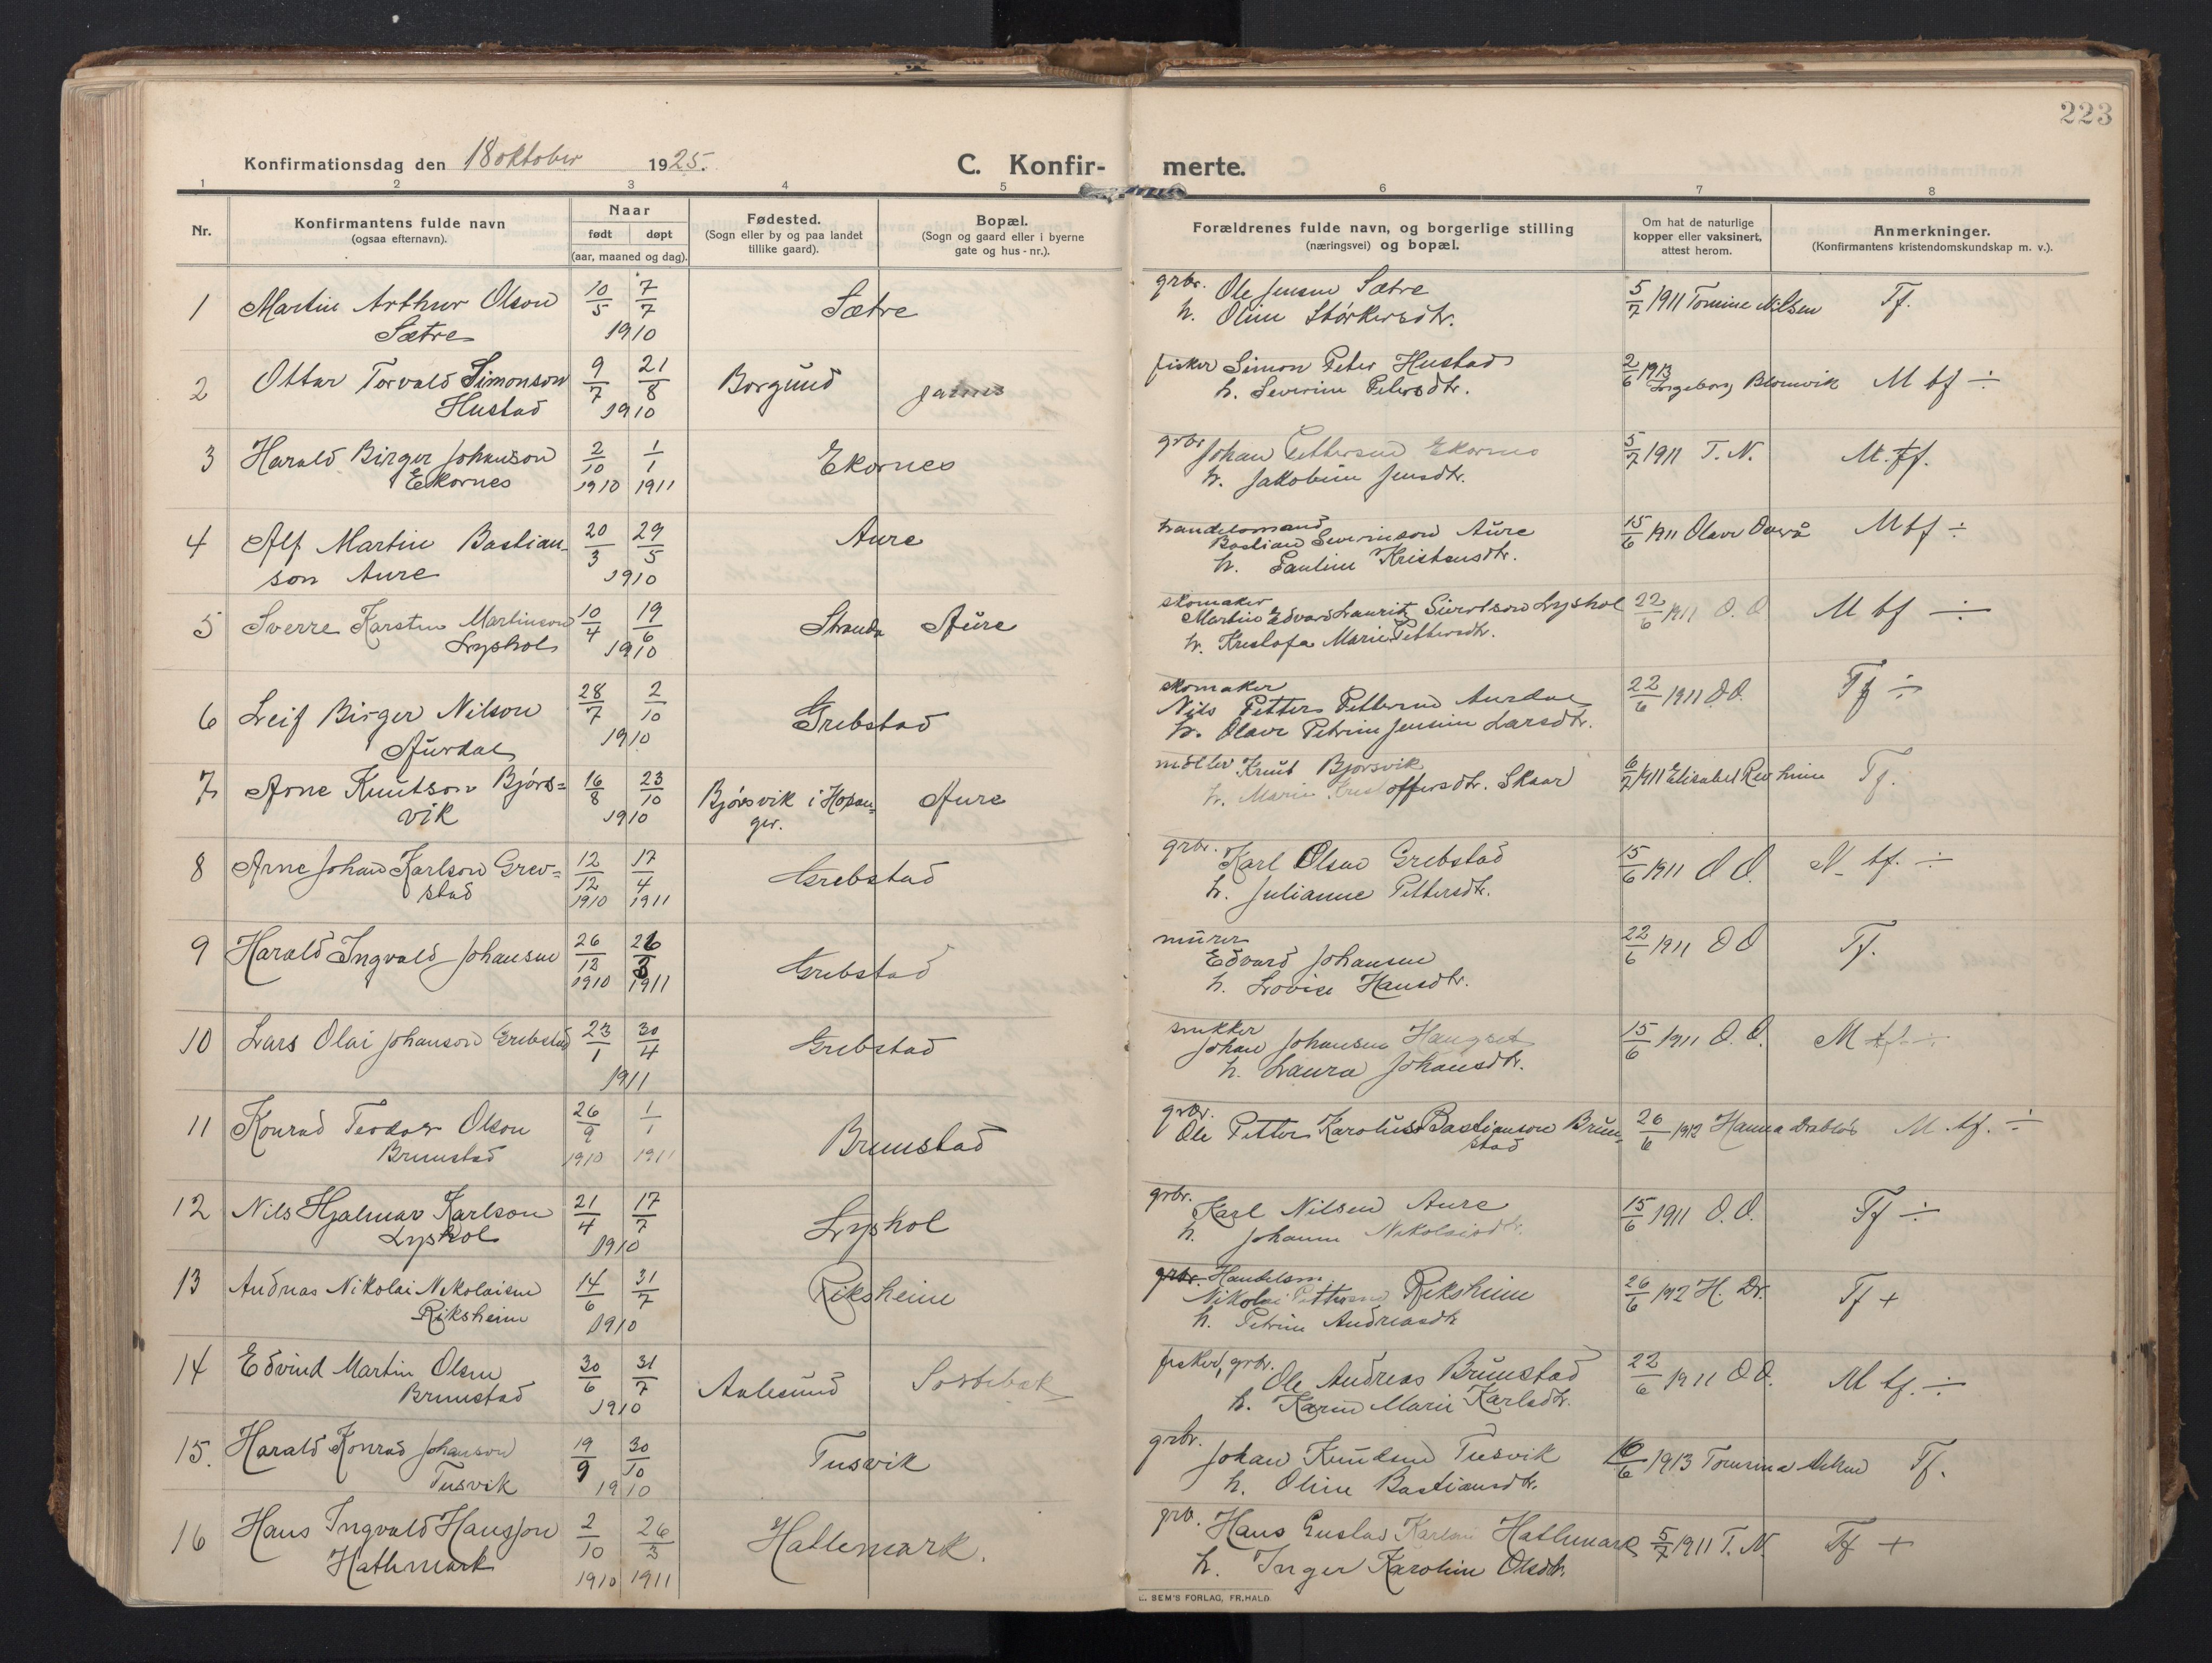 223
Konfirmationsdag den 18 oktober 1925. C. Konfir- merte.
1 2 3 4 5 6 7 8
Nr. Konfirmantens fulde navn (ogsaa efternavn). Naar født døpt (aar, maaned og dag). Fødested. (Sogn eller by og paa landet tillike gaard). Bopæl. (Sogn og gaard eller i byerne gate og hus-nr.). Forældrenes fulde navn, og borgerlige stilling (næringsvei) og bopæl. Om hat de naturlige kopper eller vaksinert, attest herom. Anmerkninger. (Konfirmantens kristendomskundskap m. v.).
1 Martin Arthur Olson 10/5 7/7 Sætre grbr. Ole Jensen Sætre 5/7 1911 Tomine Nilsen Tf.
Sætre 1910 h. Oline Størkersdtr.
2 Ottar Torvald Simonson 9/7 21/8 Borgund Jarnes fisker Simon Peter Hustad 2/6 1913 Ingeborg Blomvik M tf ÷
Hustad 1910 h. Severine Petersdtr.
3 Harald Birger Johanson 2/10 1/1 Ekornes grbr Johan Pettersen Ekornes 5/7 1911 T. N. M. tf.
Ekornes 1910 1911 h. Jakobine Jensdtr.
4 Alf Martin Bastian- 20/3 29/5 Aure handelsmand Bastian Severinson Aure 15/6 1911 Olave M tf ÷
son Aure 1910 h. Pauline Kristensdtr.
5 Sverre Karsten Martinson 10/4 19/6 Stranda Aure skomaker Martin Edvard Laurits Sivertson Lyshol 22/6 1911 O. O. M tf ÷
Lyshol 1910 h. Kristofa Marie Pettersdtr.
6 Leif Birger Nilson 28/7 2/10 Grebstad skomaker Nils Petter Pettersen Aurdal 22/6 1911 O.O. Tf ÷
Aurdal 1910 h. Olave Petrine Jensine Larsdtr.
7 Arne Knutson Bjørs= 16/8 23/10 Bjørsvik i Hosan= Aure møller Knut Bjørsvik 6/7 1911 Elisabet Tf.
vik 1910 ger. h. Marie Kristoffersdtr. Skaar
8 Arne Johan Karlson Grev= 12/12 17/4 Grebstad grbr. Karl Olsen Grebstad 15/6 1911 O O. M tf. ÷
stad 1910 1911 h. Julianne Pettersdtr.
9 Harald Ingvald Johansen 26/12 26/3 Grebstad murer Edvard Johansen 22/6 1911 O O Tf.
1910 1911 h. Lovise Hansdtr.
10 Lars Olai Johanson Grebstad 23/1 30/4 Grebstad snekker Johan Johansen 15/6 1911 O. O. M tf. ÷
1911 h. Laura Johansdtr.
11 Konrad Teodor Olson 26/9 1/1 Brunstad grbr. Ole Petter Karolius Bastianson Brun- 26/6 1912 Hanna Drabløs M. tf. ÷
Brunstad 1910 1911 stad
12 Nils Hjalmar Karlson 21/4 17/7 Lyshol grbr. Karl Nilsen Aure 15/6 1911 O. O. Tf ÷
Lyshol 1910 h. Johanne Nikolaisdtr.
13 Andreas Nikolai Nikolaisen 14/6 31/7 Riksheim grbr. Handelsm. Nikolai Pettersen Riksheim 26/6 1912 H. Dr. Tf +
Riksheim 1910 h. Petrine Andreasdtr
14 Edvind Martin Olsen 30/6 31/7 Aalesund Sortebak fisker, grbr. Ole Andreas Brunstad 22/6 1911 O O. M tf. ÷
Brunstad 1910 h. Karen Marie Karlsdtr.
15. Harald Konrad Johanson 19/9 30/10 Tusvik grbr. Johan Knudsen Tusvik 6 1913 Tomina Nilsen Tf.
Tusvik 1910 h. Oline Bastiansdtr.
16 Hans Ingvald Hansson 2/10 26/3 Hatlemark. grb. Hans Gustav Karlsen Hatlemark 5/7 1911 T. N. Tf +
Hatlemark 1910 1911 h. Inger Karoline Olsdtr.
SEM'S FORLAG, FR.HALD